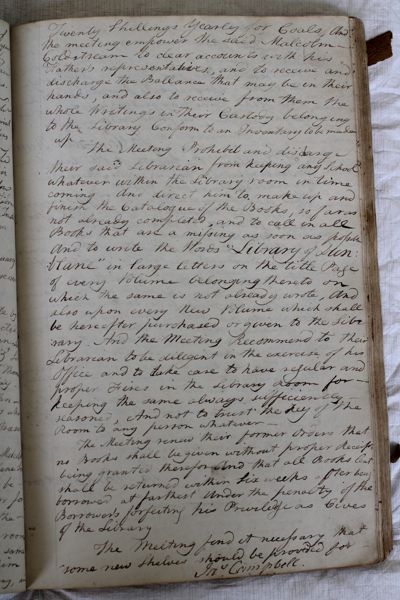 Twenty Shillings Yearly for Coals, And
the meeting empower the said Malcolm
Coldstream to clear accounts with his
Father's representatives, and to receive and
discharge the Ballance that may be in their
hands, and also to receive from them the
whole Writings in their Custody belonging
to the Library Conform to an Inventary to be made
up
The Meeting Prohibit and discharge
their said Librarian from keeping any School
whatever within the Library room in time
coming And direct him to make up and
finish the Catalogue of the Books, so far as
not already compleated, and to call in all
Books that are a missing as soon as possible
And to write the Words "Library of Dun-
blane" in large letters on the title Page
of every Volume belonging thereto on
which the same is not already wrote, And
also upon every New Volume which shall
be hereafter purchased or given to the Lib-
rary. And the Meeting Recommend to their
Librarian to be diligent in the exercise of his
Office and to take care to have regular and
proper Fires in the Library Room for
keeping the same always sufficiently
seasoned, And not to trust the Key of the
Room to any person whatever
The Meeting renew their former Orders that
no Books shall be given without proper Receipts
being granted therefor And that all Books lent
shall be returned within Six weeks after being
borrowed at farthest Under the penalty of the
Borrowers forfeiting his Priviledge as
of the Library
The Meeting find it necessary that
some new shelves should be provided for
Campbell